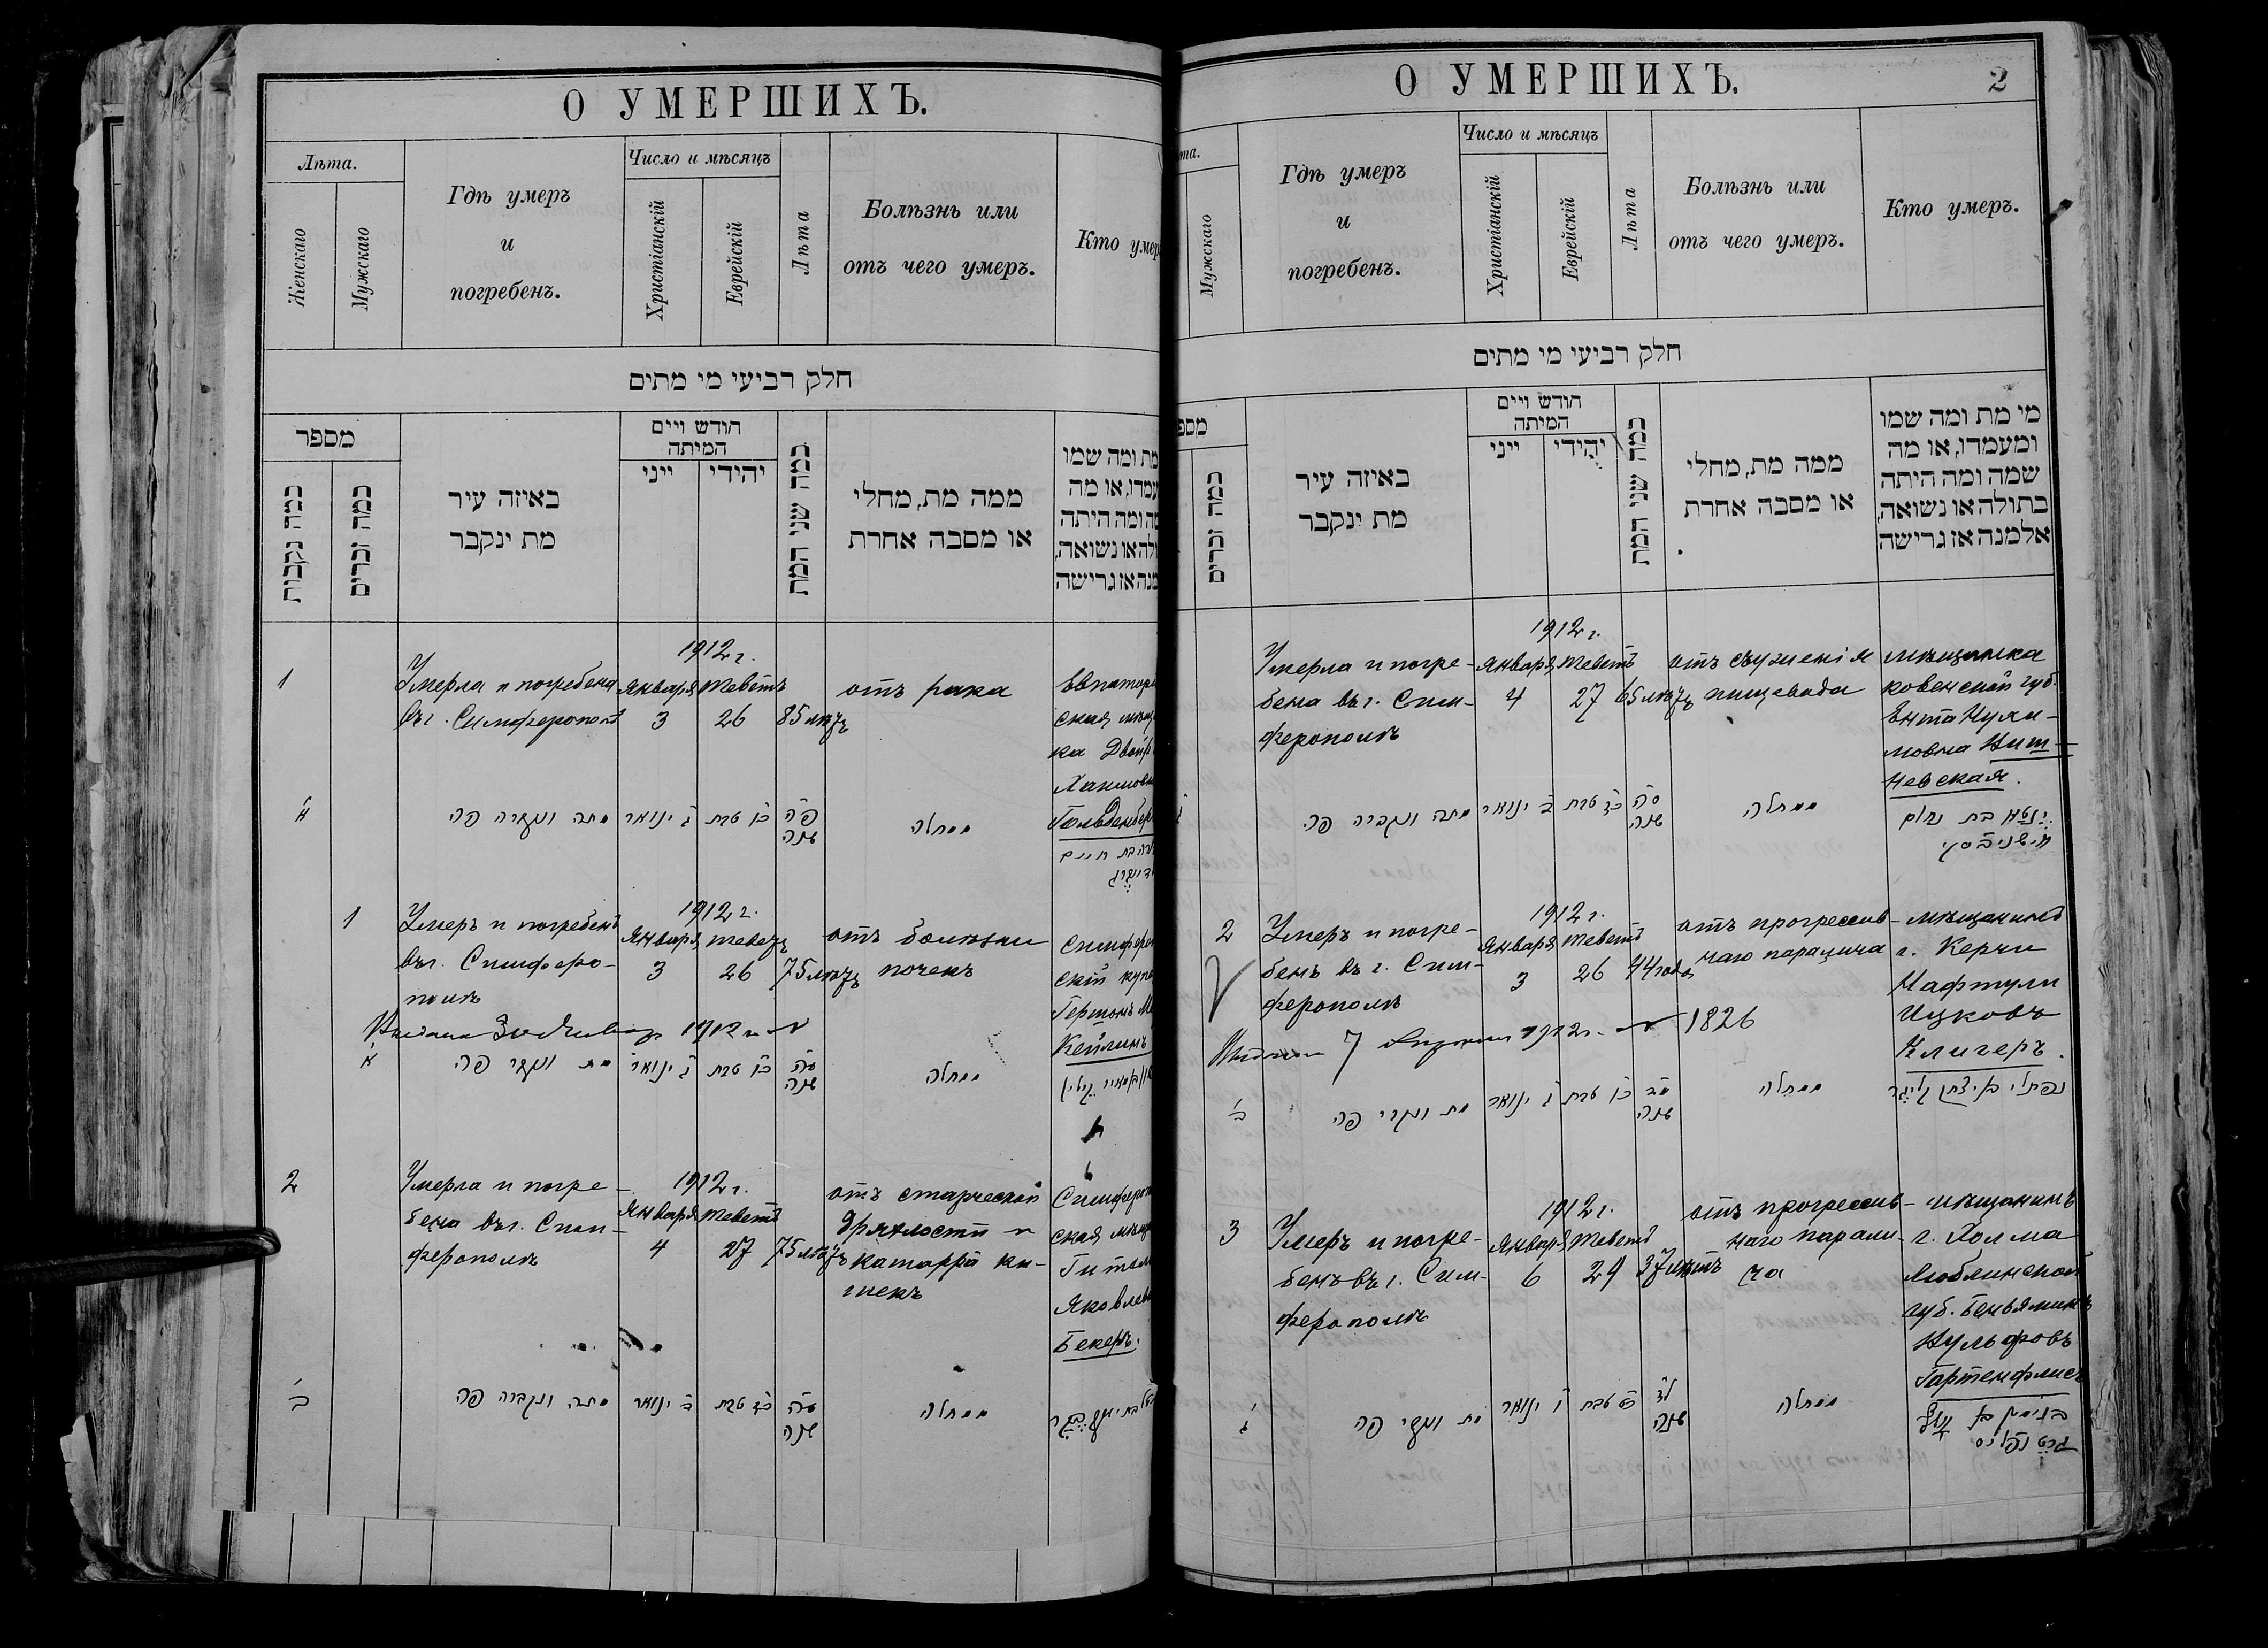 О УМЕРШИХЪ.
Лѣта.
Женскаго
Мужскаго
Гдѣ умеръ
и
погребенъ.
Число и мѣсяцъ
Христіанскій
Еврейскій
Лѣта
Болѣзнь или
отъ чего умеръ.
Кто умер
חלק רביעי מי מתים
מספר
כמה נקבות
כמה זכרים
באיזה עיר
מת ינקבר
חודש ויים
המיתה
ייני
יהידי
כמה שני המת
ממה מת, מחלי
או מסבה אחרת
מת ומה שמו
עמדו, או מה
מה ומה היתה
ולה או נשואה,
מנה אז גרישה
1
Умерла и погребена
въ г. Симферополѣ
1912 г.
Января
3
Теветъ
26
85 лѣтъ
отъ рака
Евпатор
ская мѣщ
ка Двойр
Хаимов
Гольденбер
א
מתה ונקברה פה
ג ינואר
כו טבת
פה
שנה
ממחלה
בת חיים
1
Умеръ и погребенъ
въ г. Симферо-
полѣ
1912 г.
Января
3
Теветъ
26
75 лѣтъ
отъ болѣзни
почекъ
Симферо
скій купе
Гершонъ М
Кейлинъ
1912 г. №
א
מת ונקבר פה
ג ינואר
כו טבת
עה
שנה
ממחלה
קילין
2
Умерла и погре-
бена въ г. Сим-
ферополѣ
1912 г.
Января
4
Теветъ
27
75 лѣтъ
отъ старческой
дряхлости и
катарра ки-
шекъ
Симферо
ская мѣщ
Гитель
Яковлев
Бекеръ.
ב
מתה ונקברה פה
ד ינואר
כז טבת
עה
שנה
ממחלה
בת יעקב בקר
О УМЕРШИХЪ.
2
та.
Мужскаго
Гдѣ умеръ
и
погребенъ.
Число и мѣсяцъ
Христіанскій
Еврейскій
Лѣта
Болѣзнь или
отъ чего умеръ.
Кто умеръ.
חלק רביעי מי מתים
מספ
כמה זכרים
באיזה עיר
מת ינקבר
חודש ויים
המיתה
ייני
יהידי
כמה שני המת
ממה מת, מחלי
או מסבה אחרת
מי מת ומה שמו
ומעמדו, או מה
שמה ומה היתה
בתולה או נשואה,
אלמנה אז גרישה
Умерла и погре-
бена въ г. Сим-
ферополѣ
1912 г.
Января
4
Теветъ
27
65 лѣтъ
отъ съуженія
пищевода
мѣщанка
Ковенской губ.
Ента Нухи-
мовна Ниш-
невская.
מתה ונקברה פה
ד ינואר
כז טבת
סה
שנה
ממחלה
יענטא בת נחום
2
Умеръ и погре-
бенъ въ г. Сим-
ферополѣ
1912 г.
Января
3
Теветъ
26
44 года
отъ прогрессив-
наго паралича
мѣщанинъ
г. Керчи
Нафтули
Ицковъ
Клигеръ.
7
1912 г. № 1826
ב
מת ונקבר פה
ג ינואר
כו טבת
שנה
ממחלה
נפתלי בן יצחק קליגר
3
Умеръ и погре-
бенъ въ г. Сим-
ферополѣ
1912 г.
Января
6
Теветъ
29
37 лѣтъ
отъ прогрессив-
наго парали-
ча
мѣщанинъ
г. Холма
Люблинской
губ. Беньяминъ
Нульфовъ
Гартенфлис
ג
מת ונקבר פה
ו ינואר
כט טבת
לז
שנה
ממחלה
בנימין בן